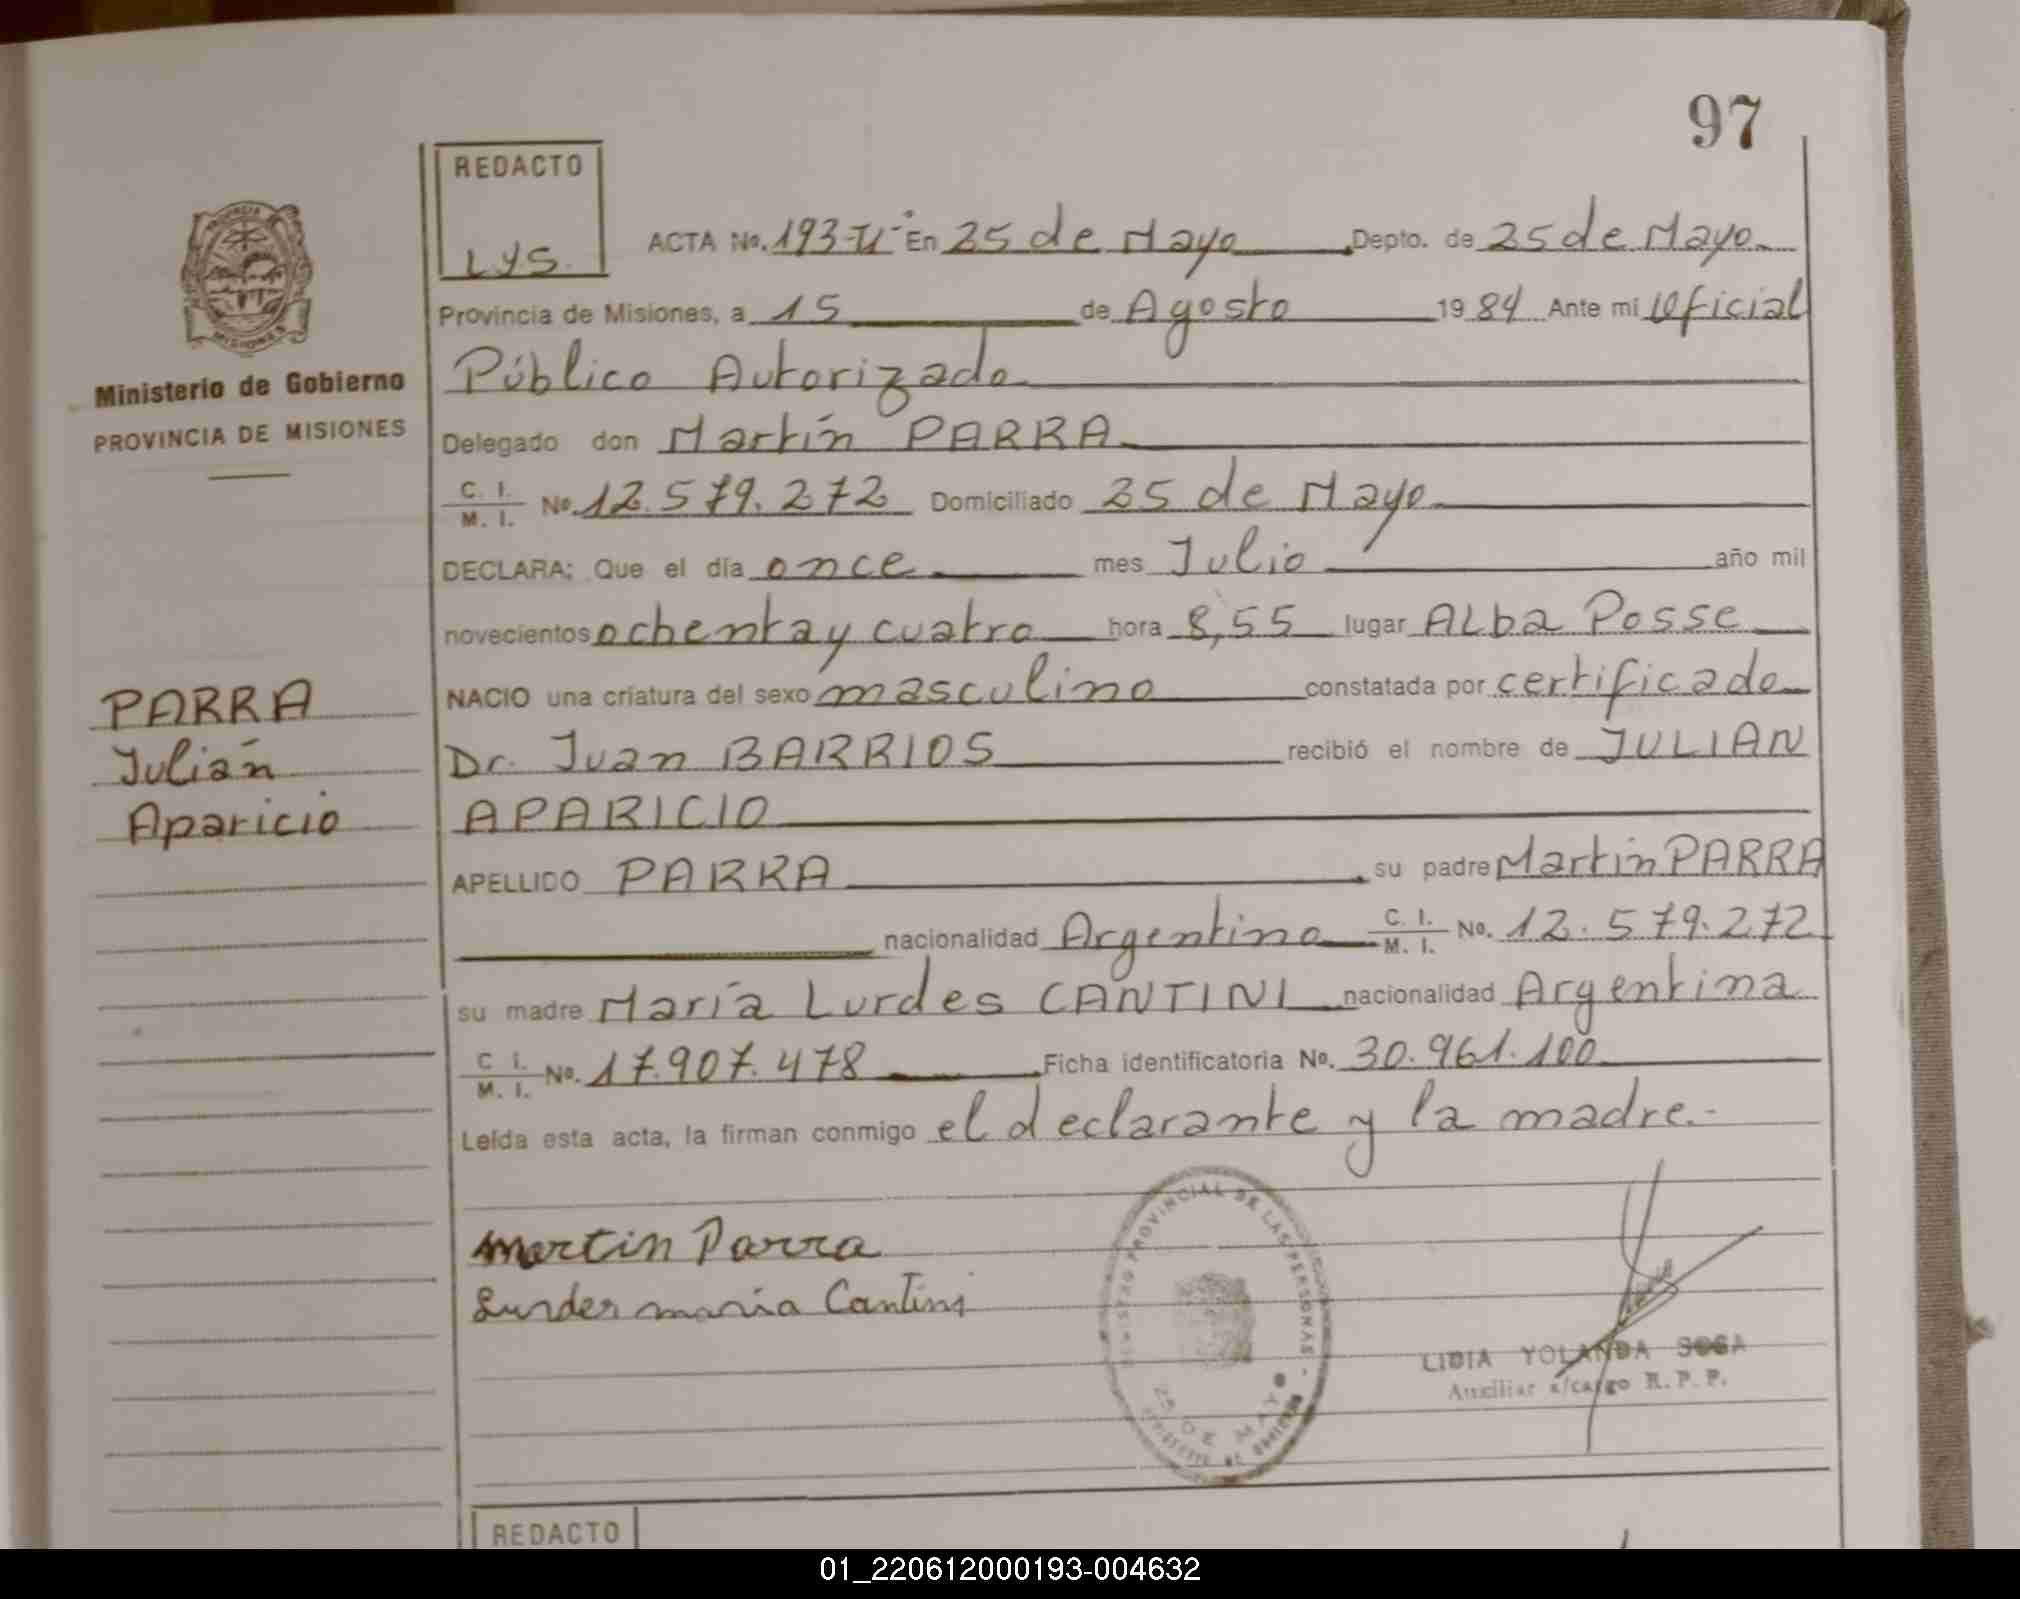 97
REDACTO
LYS.
ACTA No. 193-TI- En 25 de Mayo Depto. de 25 de Mayo
Provincia de Misiones, a 15 de Agosto 1984 Ante mi Oficial
Público Autorizado
Ministerio de Gobierno
PROVINCIA DE MISIONES
Delegado don Martín PARRA
C. I. / M. I. No. 12.579.272 Domiciliado 25 de Mayo
DECLARA: Que el día once mes Julio año mil
novecientos ochenta y cuatro hora 8,55 lugar ALba Posse
NACIO una criatura del sexo masculino constatada por certificado
Dr. Juan BARRIOS recibió el nombre de JULIAN
APARICIO
PARRA
Julián
Aparicio
APELLIDO PARRA su padre Martín PARRA
nacionalidad Argentino C. I. / M. I. No. 12.579.272
su madre María Lurdes CANTINI nacionalidad Argentina
C I. / M. I. No. 17.907.478 Ficha identificatoria No. 30.961.100
Leída esta acta, la firman conmigo el declarante y la madre.-
martin Parra
Lurdes maria Cantini
PROVINCIAL DE LAS PERSONAS
25 DE MAYO
LIDIA YOLANDA SOSA
Auxiliar a/cargo R. P. P.
REDACTO
01_220612000193-004632